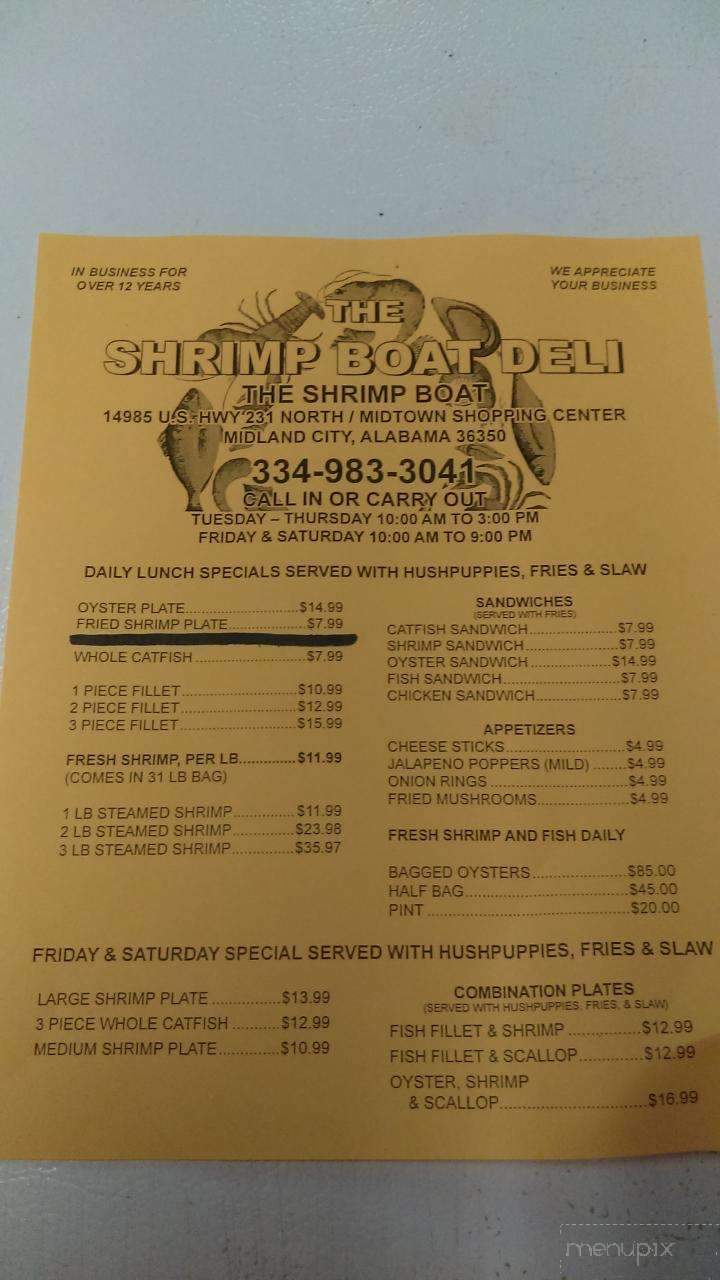 IN BUSINESS FOR
OVER 12 YEARS
WE APPRECIATE
YOUR BUSINESS
THE
SHRIMP BOAT DELI
THE SHRIMP BOAT
14985 U.S. HWY 231 NORTH / MIDTOWN SHOPPING CENTER
MIDLAND CITY, ALABAMA 36350
334-983-3041
CALL IN OR CARRY OUT
TUESDAY – THURSDAY 10:00 AM TO 3:00 PM
FRIDAY & SATURDAY 10:00 AM TO 9:00 PM
DAILY LUNCH SPECIALS SERVED WITH HUSHPUPPIES, FRIES & SLAW
OYSTER PLATE..............................$14.99
FRIED SHRIMP PLATE......................$7.99
WHOLE CATFISH............................$7.99
1 PIECE FILLET.............................$10.99
2 PIECE FILLET.............................$12.99
3 PIECE FILLET.............................$15.99
FRESH SHRIMP, PER LB.............$11.99
(COMES IN 31 LB BAG)
1 LB STEAMED SHRIMP...............$11.99
2 LB STEAMED SHRIMP...............$23.98
3 LB STEAMED SHRIMP...............$35.97
SANDWICHES
(SERVED WITH FRIES)
CATFISH SANDWICH......................$7.99
SHRIMP SANDWICH.......................$7.99
OYSTER SANDWICH.....................$14.99
FISH SANDWICH............................$7.99
CHICKEN SANDWICH.....................$7.99
APPETIZERS
CHEESE STICKS.............................$4.99
JALAPENO POPPERS (MILD) ........$4.99
ONION RINGS.................................$4.99
FRIED MUSHROOMS......................$4.99
FRESH SHRIMP AND FISH DAILY
BAGGED OYSTERS.......................$85.00
HALF BAG......................................$45.00
PINT ..............................................$20.00
FRIDAY & SATURDAY SPECIAL SERVED WITH HUSHPUPPIES, FRIES & SLAW
LARGE SHRIMP PLATE ..............$13.99
3 PIECE WHOLE CATFISH ...........$12.99
MEDIUM SHRIMP PLATE.............$10.99
COMBINATION PLATES
(SERVED WITH HUSHPUPPIES, FRIES, & SLAW)
FISH FILLET & SHRIMP ..............$12.99
FISH FILLET & SCALLOP.............$12.99
OYSTER, SHRIMP
& SCALLOP..............................$16.99
menupix